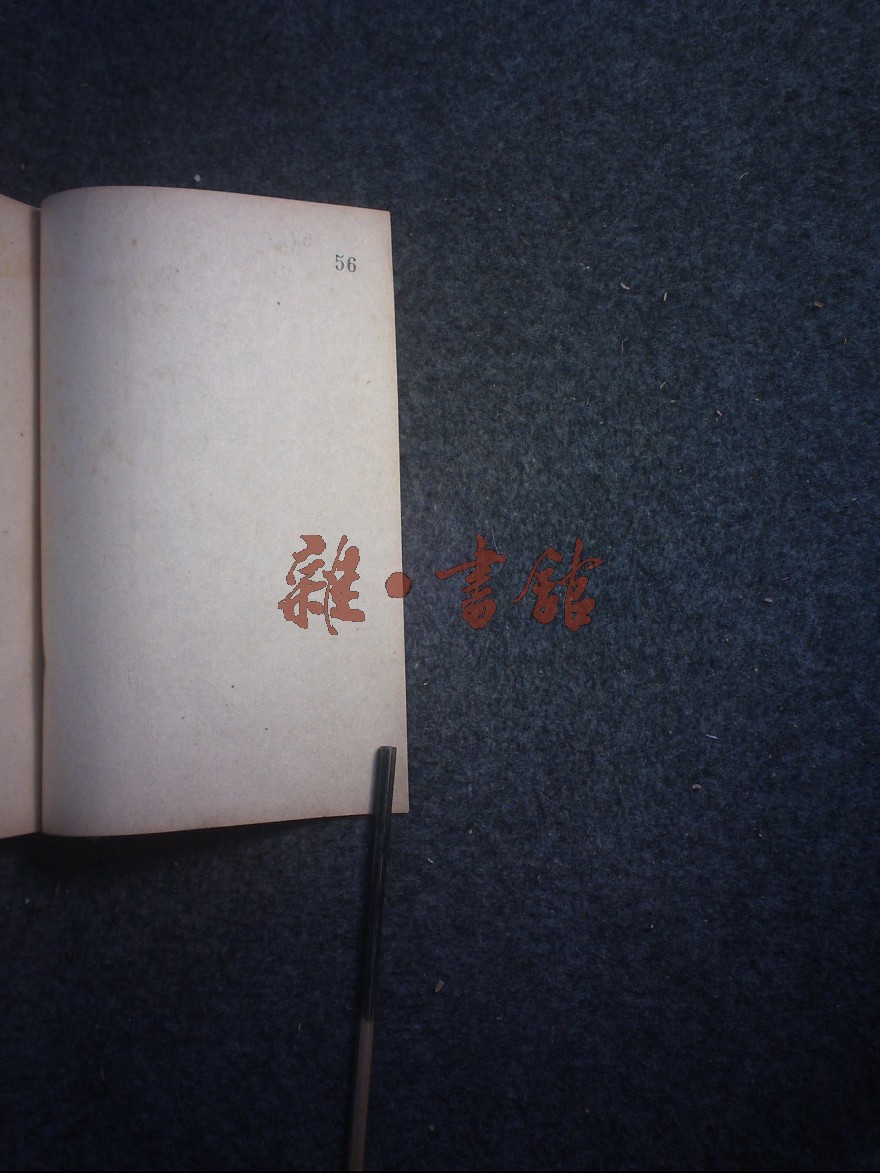 56
雜·書館